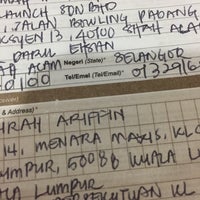 LAUNCH SDN BHD
, JALAN BOWLING PADANG
KSYEN 13, 40100 SHAH ALA
DARUL EHSAN
AH ALAM Negeri (State)* SELANGOR
0100 Tel/Emel (Tel/Email)* 0132916
ceiver)
& Address)*
RAH ARIFFIN
14, MENARA MAXIS, KLC
UMPUR, 50088 KUALA L
LA LUMPUR
PERSEKUTUAN KL